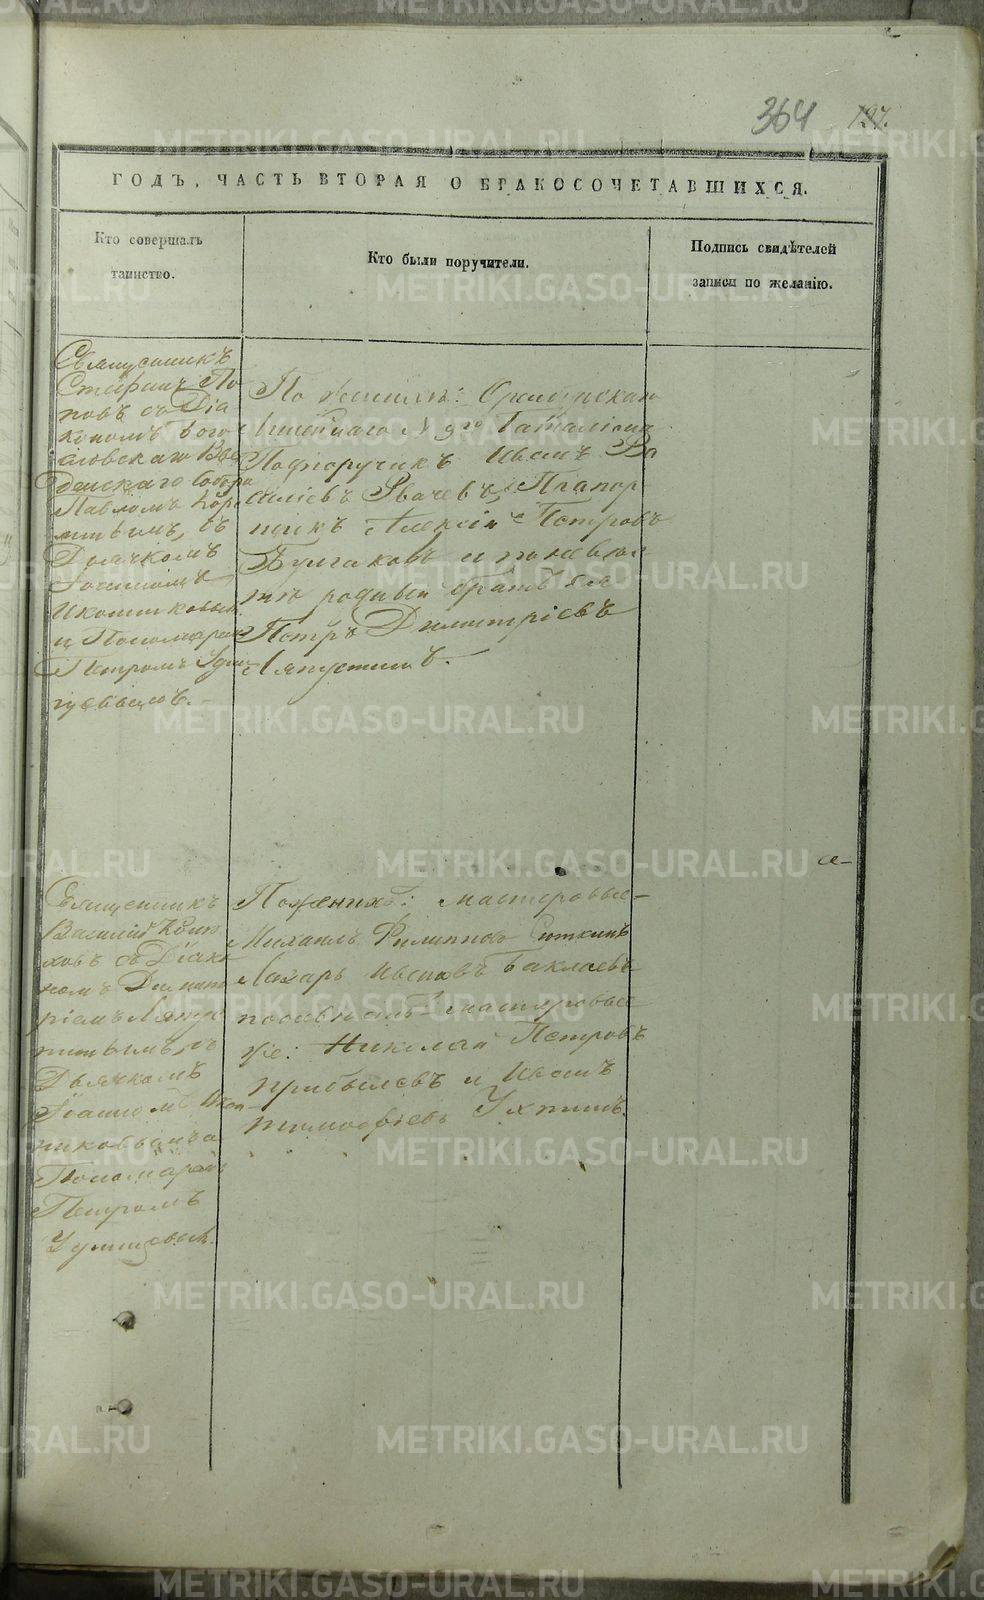 364 127.
ГОДЪ, ЧАСТЬ ВТОРАЯ О БРАКОСОЧЕТАВШИХСЯ.
Кто совершалъ
таинство.
Кто были поручители.
Подпись свидѣтелей
записи по желанію.
Священникъ
Стефанъ По
повъ съ Діа
кономъ Бого
словскаго Вве
денскаго Собора
Павломъ
съ
Дьячкомъ
Иконниковымъ
и Пономаремъ
Петромъ
По женихѣ: Оренбургскаго
Линейнаго № 9го Баталіона
Подпоручикъ Иванъ Ва
силіевъ Рвачевъ, Прапор
щикъ Алексѣй Петровъ
Булгаковъ и по невѣс
тѣ родный братъ ея
Петръ Димитріевъ
Ляпустинъ.
Священникъ
Василій
ковъ съ Діако
номъ Димит
ріемъ Ляпус
тинымъ, съ
Дьячкомъ
Іоанномъ Икон
никовымъ и
Пономаремъ
Петромъ
По женихѣ: мастеровые
Михаилъ Филипповъ Ситкинъ
Лазарь Ивановъ Баклаевъ
по невѣстѣ мастеровые
же: Николай Петровъ
Прибылевъ и Иванъ
Тимофѣевъ Ухтинъ.
METRIKI.GASO-URAL.RU